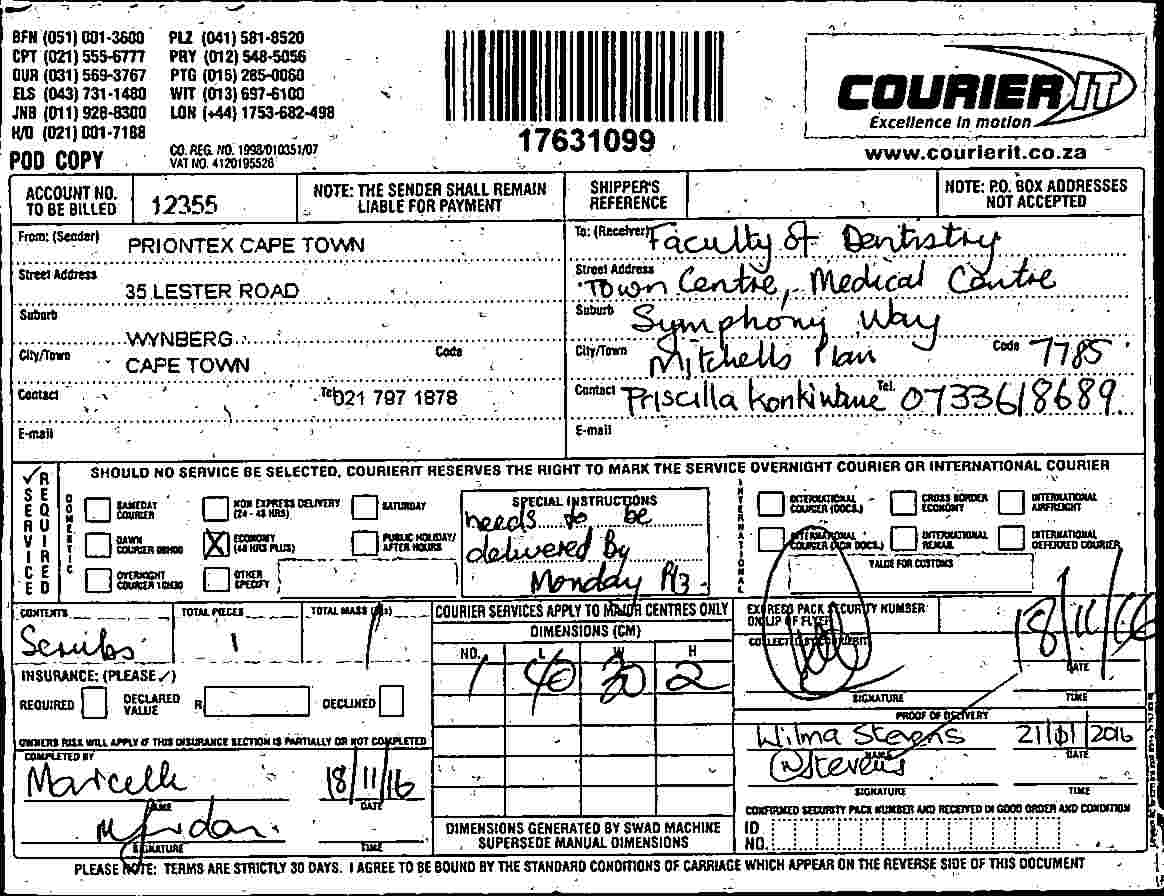 BFN (051) 001-3600 PLZ (041) 581-8520
CPT (021) 555-6777 PRY (012) 548-5056
DUR (031) 569-3767 PTG (015) 285-0060
ELS (043) 731-1480 WIT (013) 697-6100
JNB (011) 928-8300 LON (+44) 1753-682-498
H/O (021) 001-7188
POD COPY
CO. REG. NO. 1998/010351/07
VAT NO. 4120195526
17631099
COURIER IT
Excellence in motion
www.courierit.co.za
ACCOUNT NO. TO BE BILLED 12355
NOTE: THE SENDER SHALL REMAIN LIABLE FOR PAYMENT
SHIPPER'S REFERENCE
NOTE: P.O. BOX ADDRESSES NOT ACCEPTED
From: (Sender) PRIONTEX CAPE TOWN
Street Address 35 LESTER ROAD
Suburb WYNBERG
City/Town CAPE TOWN Code
Contact Tel 021 797 1878
E-mail
To: (Receiver) Faculty of Dentistry
Street Address Town Centre, Medical Centre
Suburb Symphony Way
City/Town Mitchells Plan Code 7785
Contact Priscilla Tel. 0733618689
E-mail
SERVICE REQUIRED
SHOULD NO SERVICE BE SELECTED, COURIERIT RESERVES THE RIGHT TO MARK THE SERVICE OVERNIGHT COURIER OR INTERNATIONAL COURIER
DOMESTIC
SAMEDAY COURIER
NON EXPRESS DELIVERY (24 - 48 HRS)
SATURDAY
DAWN COURIER 08H00
X ECONOMY (48 HRS PLUS)
PUBLIC HOLIDAY/ AFTER HOURS
OVERNIGHT COURIER 10H30
OTHER SPECIFY
SPECIAL INSTRUCTIONS
needs to be
delivered By
Monday
INTERNATIONAL
INTERNATIONAL COURIER (DOCS.)
CROSS BORDER ECONOMY
INTERNATIONAL AIRFREIGHT
INTERNATIONAL COURIER (NON DOCS.)
INTERNATIONAL REMAIL
INTERNATIONAL DEFERRED COURIER
VALUE FOR CUSTOMS
CONTENTS Scrubs
TOTAL PIECES 1
TOTAL MASS 1
INSURANCE: (PLEASE ✓)
REQUIRED DECLARED VALUE R DECLINED
OWNERS RISK WILL APPLY IF THIS INSURANCE SECTION IS PARTIALLY OR NOT COMPLETED
COMPLETED BY
Maricelle 18/11/16
NAME DATE
SIGNATURE TIME
COURIER SERVICES APPLY TO MAJOR CENTRES ONLY
DIMENSIONS (CM)
NO. L W H
1 40 30 2
DIMENSIONS GENERATED BY SWAD MACHINE SUPERSEDE MANUAL DIMENSIONS
EXPRESS PACK SECURITY NUMBER ON LIP OF FLYER
COLLECTED BY COURIERIT
18/11/16
DATE
SIGNATURE TIME
PROOF OF DELIVERY
Wilma Stevens 21/11/2016
NAME DATE
WStevens
SIGNATURE TIME
CONFIRMED SECURITY PACK NUMBER AND RECEIVED IN GOOD ORDER AND CONDITION
ID NO.
PLEASE NOTE: TERMS ARE STRICTLY 30 DAYS. I AGREE TO BE BOUND BY THE STANDARD CONDITIONS OF CARRIAGE WHICH APPEAR ON THE REVERSE SIDE OF THIS DOCUMENT